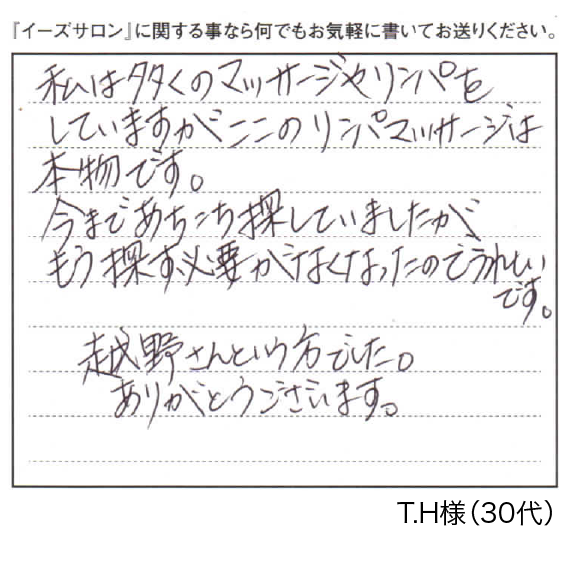 『イーズサロン』に関する事なら何でもお気軽に書いてお送りください。
私は多くのマッサージやリンパを
していますがここのリンパマッサージは
本物です。
今まであちこち探していましたが
もう探す必要がなくなったのでうれしい
です。
越野さんという方でした。
ありがとうございます。
T.H様（30代）